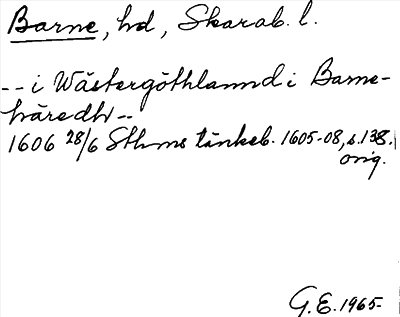 Barne, hd, Skarab. l.
-- i Wästergöthlannd i Barne-
häredh --
1606 28/6 Sthms tänkeb. 1605-08, s. 138.
orig.
G.E. 1965-